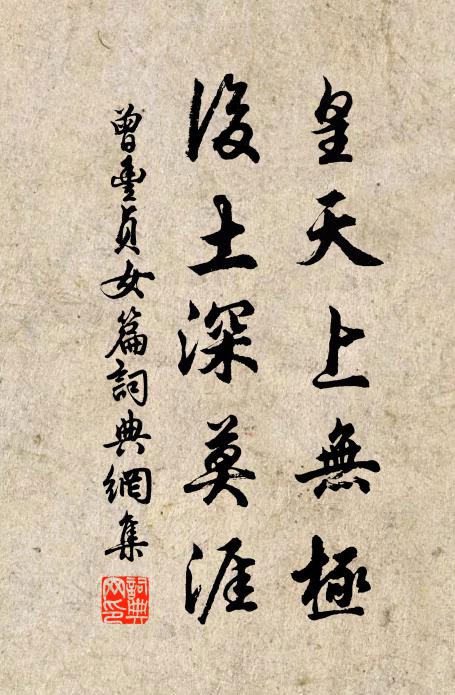 皇天上無極
後土深莫涯
曾豐貞女篇詞典網集
詞典網印